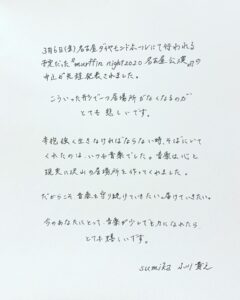 3月6日(金)名古屋ダイヤモンドホールにて行われる
予定だった『muffin night2020 名古屋公演』の
中止が先程発表されました。
こういった形で一つ居場所がなくなるのが
とても悲しいです。
幸抱強く生きなければならない時、そばにいて
くれたのは、いつも音楽でした。音楽は心と
現実に沢山の居場所を作ってくれました。
だからこそ音楽を守り続けていきたい。届けていきたい。
今のあなたにとって音楽が少しでも力になれたら
とても嬉しいです。
sumika 小川貴之